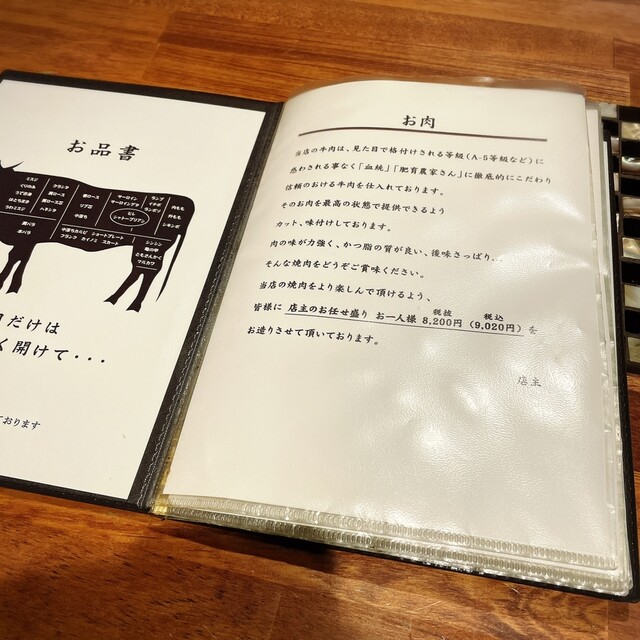 お品書
ミスジ
くりのみ
うでさき
はとちまき
カメノコ
クラシタ
肩ロース
肩ロース芯
ヘネシタ
前バラ
本バラ
前ロース
リブ芯
中落ち
サーロイン
サーロインアタマ
ヒレ
シャトーブリアン
中落ちカルビ ショートプレート
フランク カイノミ スカート
ランプ
イチボ
ランボソ
外もも
内もも
シキンボ
シンシン
亀の甲
ともさんかく
マルカワ
だけは
く開けて・・・
ております
お肉
当店の牛肉は、見た目で格付けされる等級（A-5等級など）に
惑わされる事なく「血統」「肥育農家さん」に徹底的にこだわり
信頼のおける牛肉を仕入れております。
そのお肉を最高の状態で提供できるよう
カット、味付けしております。
肉の味が力強く、かつ脂の質が良い、後味さっぱり...
そんな焼肉をどうぞご賞味ください。
当店の焼肉をより楽しんで頂けるよう、
皆様に 店主のお任せ盛り お一人様 税抜 8,200円 税込（9,020円）を
お造りさせて頂いております。
店主